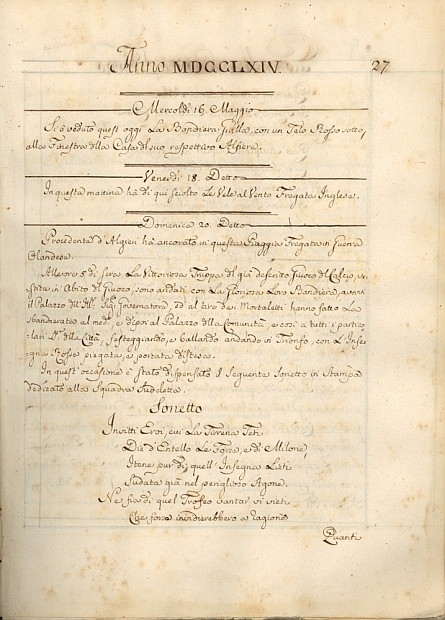 Anno MDCCLXIV. 27
Mercoldì 16 Maggio
Si è veduto quest' oggi La Bandiera Gialla, con un Telo Rosso sotto,
alle Fenestre dlla Casa dl suo respettivo Alfiere.
Venerdì 18. Detto
In questa mattina hà di quì sciolto Le Vele al Vento Fregata Inglese.
Domenica 20. Detto
Procedente d'Algieri hà ancorato in questa Piaggia Fregata in Guerra
Olandese.
Alle ore 5 di sera La Vittoriosa Truppa di già descritto Giuoco dl Calcio, ve-
stita in Abito di Giuoco, sono andati con La Gloriosa Loro Bandiera, avanti
il Palazzo dll' Governatore, ed al tiro dei Mortaletti hanno fatto La
sbandierata al med.º, e di poi al Palazzo dlla Comunità, e così a tutti i partico-
lari dlla Città, festeggiando, e ballando andando in Trionfo, con L'Inse-
gna Rossa piegata, e portata distesa.
In quest' occasione è stato dispensato il seguente Sonetto in Stampa
dedicato alla Squadra sudetta.
Sonetto
Invitti Eroi, cui La Tirrena Teti
Diè d'Entello Le forze, e di Milone,
Itene pur di quell' Insegna Lieti
Sudata già nel periglioso Agone.
Ne fia di quel Trofeo vantar vi vieti
Che forse a ragione
Quanti